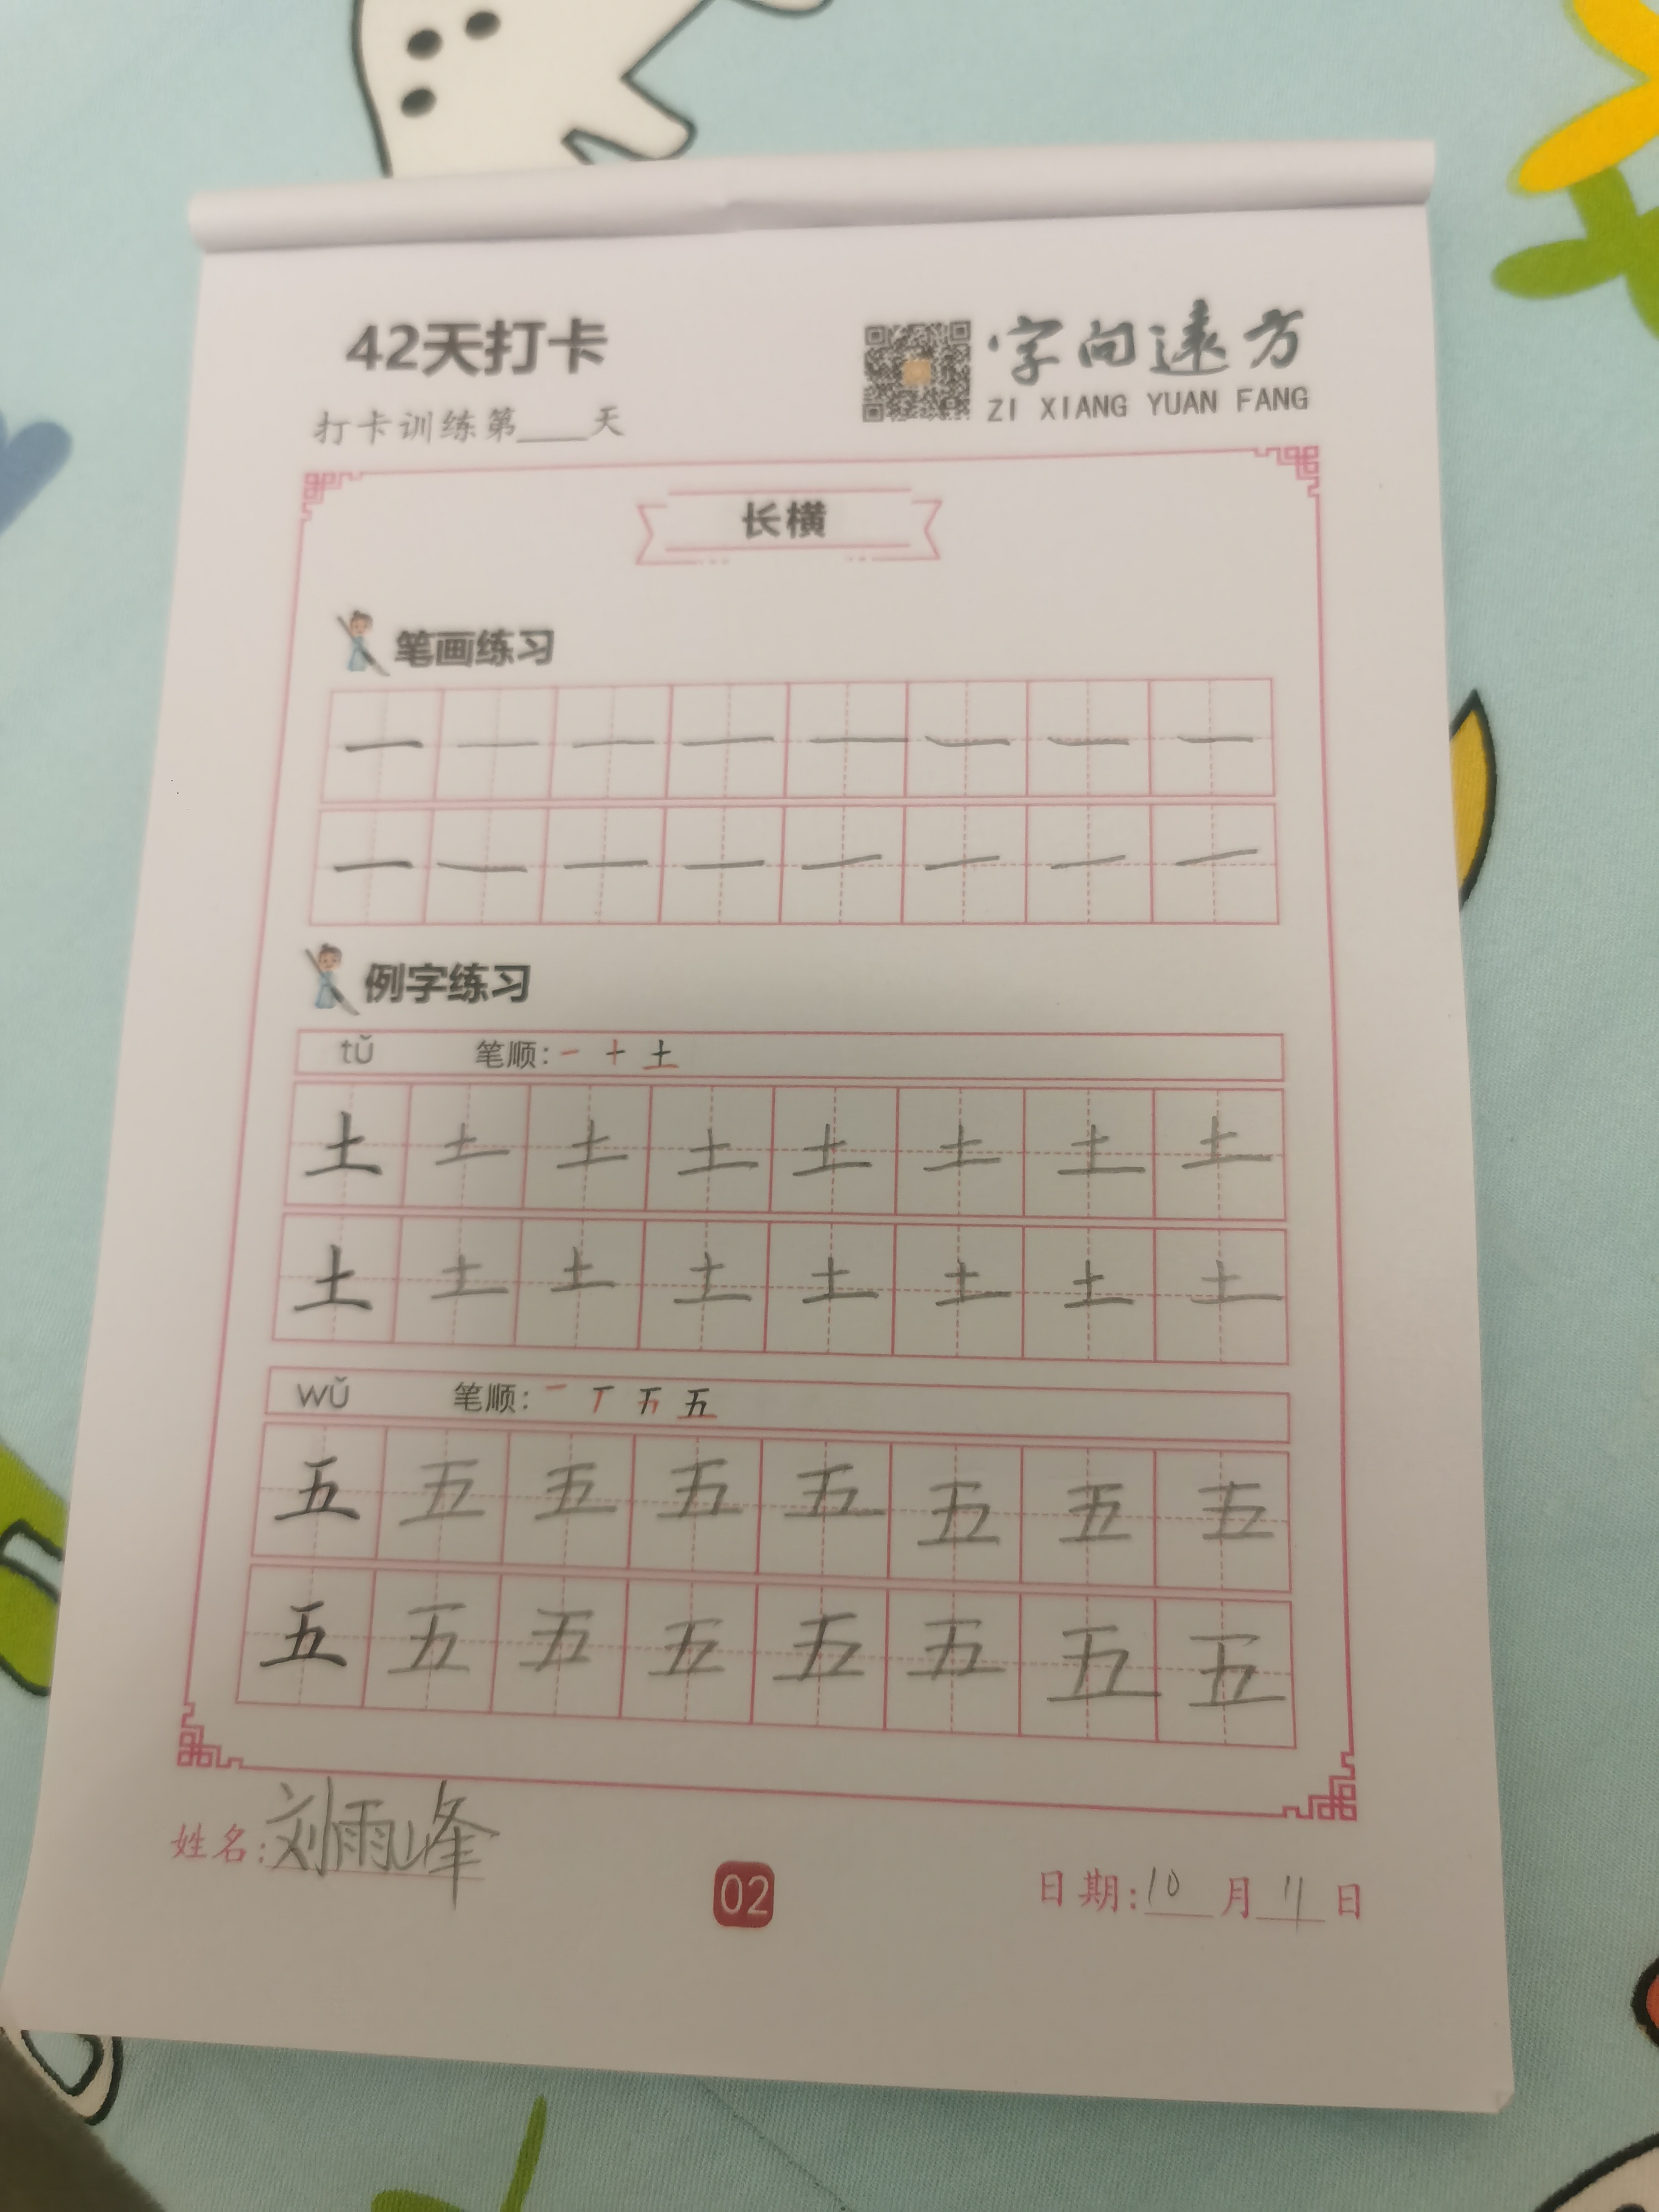 42天打卡
字向远方
ZI XIANG YUAN FANG
打卡训练第____天
长横
笔画练习
一 一 一 一 一 一 一 一
一 一 一 一 一 一 一 一
例字练习
tǔ 笔顺: 一 十 土
土 土 土 土 土 土 土 土
土 土 土 土 土 土 土 土
wǔ 笔顺: 一 丆 五
五 五 五 五 五 五 五 五
五 五 五 五 五 五 五 五
姓名: 刘雨峰
02
日期: 10 月 11 日